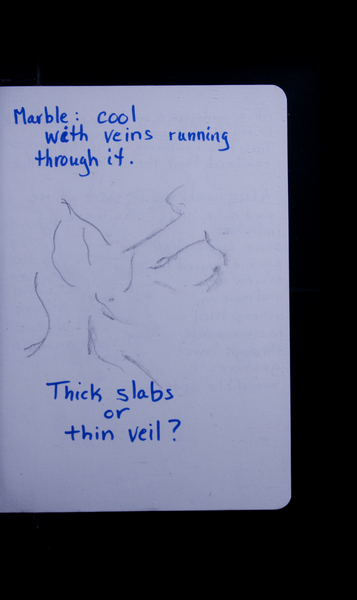 Marble: cool
with veins running
through it.
Thick slabs
or
thin veil?